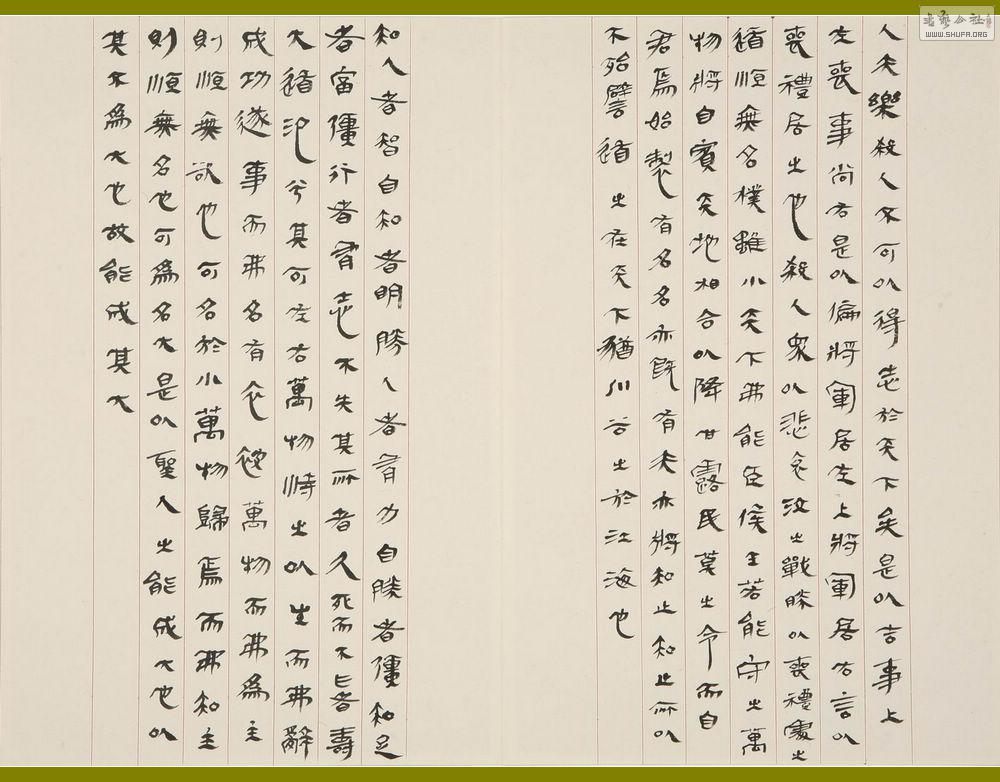 人夫樂殺人不可以得志於天下矣是以吉事上
左喪事尚右是以偏將軍居左上將軍居右言以
喪禮居之也殺人眾以悲哀泣之戰勝以喪禮處之
道順無名樸雖小天下弗能臣侯王若能守之萬
物將自賓天地相合以降甘露民莫之令而自
君焉始製有名名亦既有夫亦將知止知止所以
不殆譬道之在天下猶川谷之於江海也
知人者智自知者明勝人者有力自勝者彊知足
者富彊行者有志不失其所者久死而不亡者壽
大道氾兮其可左右萬物恃之以生而弗辭
成功遂事而弗名有衣被萬物而弗為主
則順無欲也可名於小萬物歸焉而弗知主
則順無名也可為名大是以聖人之能成大也以
其不為大也故能成其大
書藝公社
WWW.SHUFA.ORG